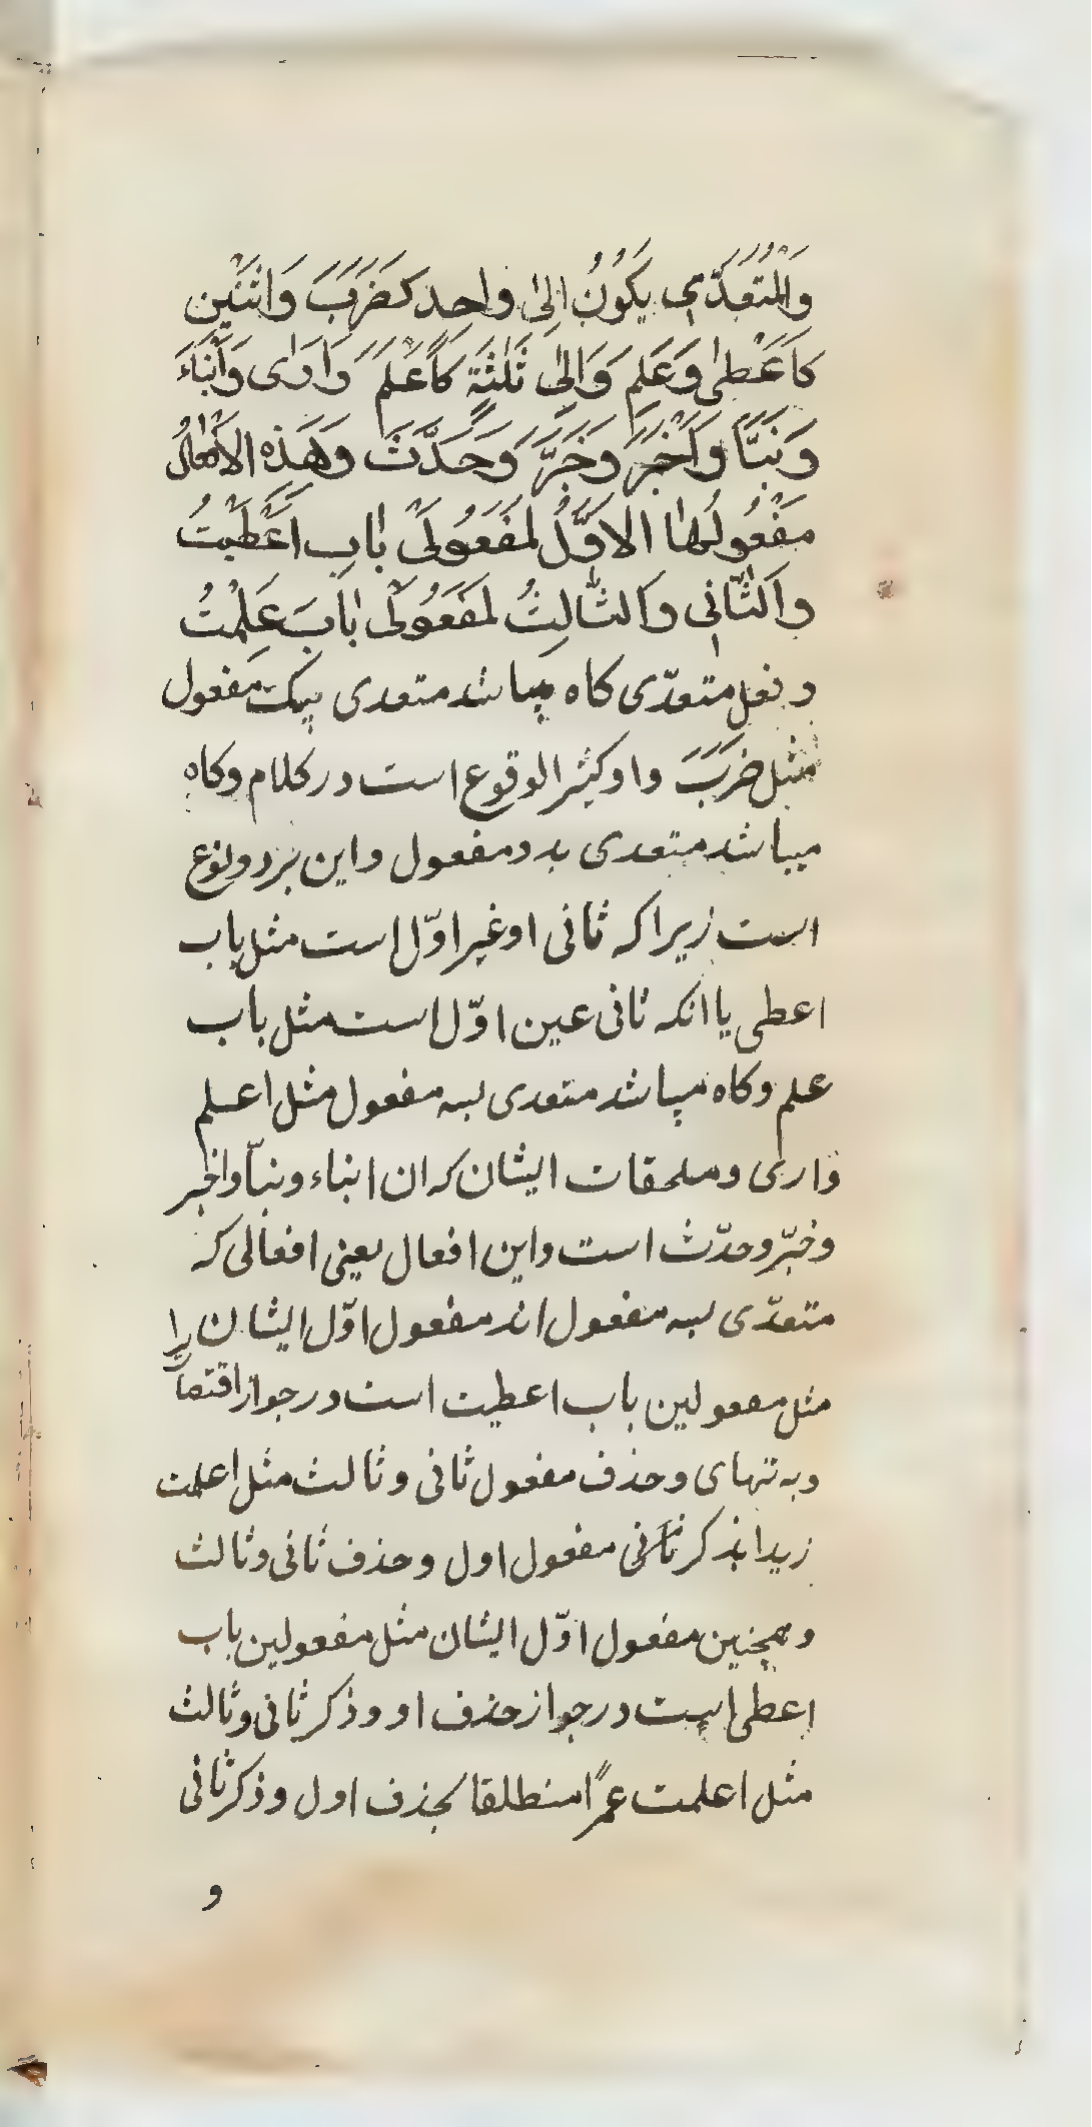 وَالْمُتَعَدِّی یَکُونُ اِلیٰ واحِد کَضَرَبَ وَاثْنَیْنِ
کَاَعْطیٰ وَعَلِمَ وَاِلیٰ ثَلٰثَةٍ کَاَعْلَمَ وَاَریٰ وَاَنْبَاَءَ
وَنَبَّاَ وَاَخْبَرَ وَخَبَّرَ وَحَدَّثَ وَهٰذِهِ الاَفْعالُ
مَفْعُولُهَا الاَوَّلُ لمَفَعُولَیْ بٰابِ اَعْطَیْتُ
وَالثّانی وَالثّالِثُ لمَفَعُولَیْ بٰابَ عَلِمْتُ
و فعل متعدّی کاه میباشد متعدی بیک مفعول
مثل ضَرَبَ واو کثیر الوقوع است در کلام وکاه
میباشد متعدی بدو مفعول واین بردو نوع
است زیرا که ثانی او غیر اوّل است مثل باب
اعطی یا انکه ثانی عین اوّل است مثل باب
علم وکاه میباشد متعدی بسه مفعول مثل اعلم
واری وملحقات ایشان که ان انباء ونبّأ واخبر
وخبّر وحدّث است واین افعال یعنی افعالی که
متعدّی بسه مفعول اند مفعول اوّل ایشان را
مثل مفعولین باب اعطیت است در جواز اقتصا
وبه تنهای وحذف مفعول ثانی وثالث مثل اعلمت
زیدا بذکر ثانی مفعول اول وحذف ثانی وثالث
وهمچنین مفعول اوّل ایشان مثل مفعولین باب
اعطی است در جواز حذف او وذکر ثانی وثالث
مثل اعلمت عمرًا منطلقا بحذف اول وذکر ثانی
و